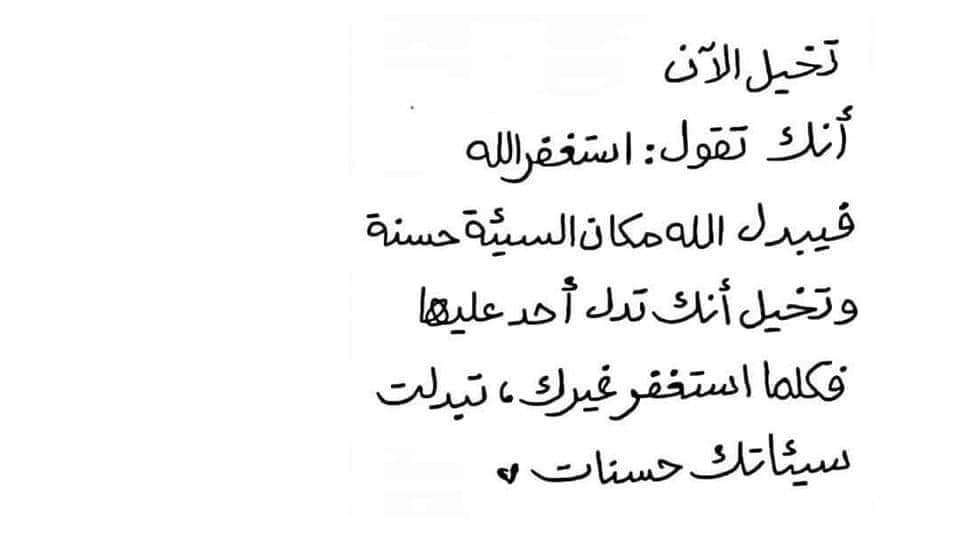 تخيل الآن
أنك تقول: استغفر الله
فيبدل الله مكان السيئة حسنة
وتخيل أنك تدل أحد عليها
فكلما استغفر غيرك، تبدلت
سيئاتك حسنات